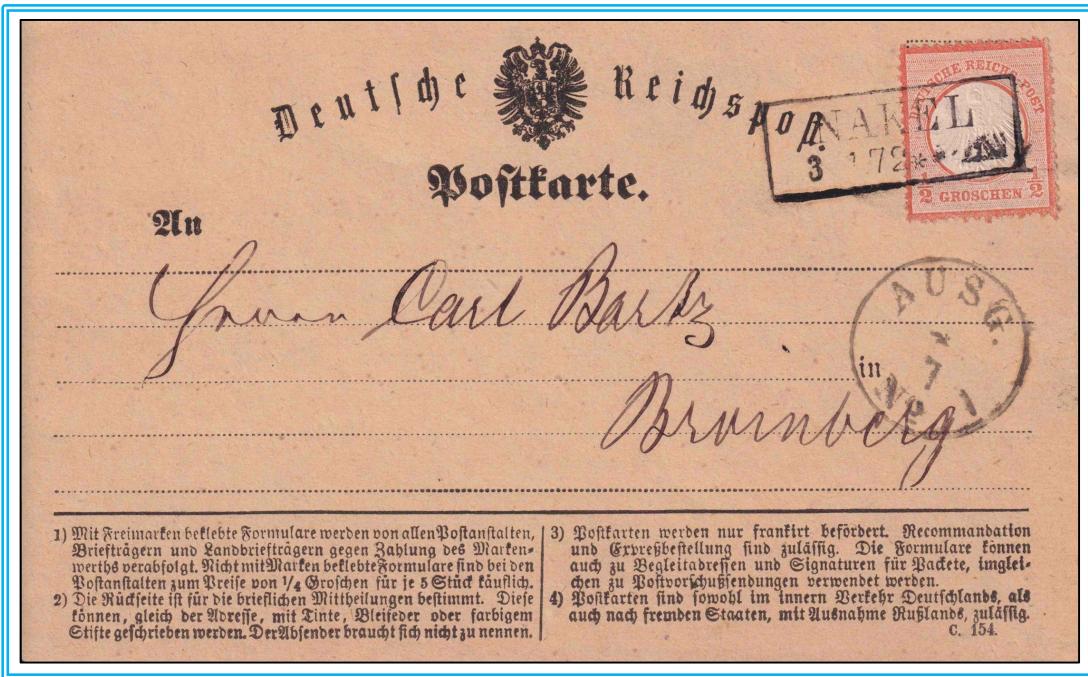 Deutsche Reichspost.
DEUTSCHE REICHS-POST
NAKEL
3 172**
½ GROSCHEN ½
Postkarte.
An
Herrn Carl Bartz
AUSG.
*
7
No 1
in
Bromberg
1) Mit Freimarken beklebte Formulare werden von allen Postanstalten,
Briefträgern und Landbriefträgern gegen Zahlung des Marken-
werths verabfolgt. Nicht mit Marken beklebte Formulare sind bei den
Postanstalten zum Preise von 1/4 Groschen für je 5 Stück käuflich.
2) Die Rückseite ist für die brieflichen Mittheilungen bestimmt. Diese
können, gleich der Adresse, mit Tinte, Bleifeder oder farbigem
Stifte geschrieben werden. Der Absender braucht sich nicht zu nennen.
3) Postkarten werden nur frankirt befördert. Recommandation
und Expreßbestellung sind zulässig. Die Formulare können
auch zu Begleitadressen und Signaturen für Packete, imglei-
chen zu Postvorschußsendungen verwendet werden.
4) Postkarten sind sowohl im innern Verkehr Deutschlands, als
auch nach fremden Staaten, mit Ausnahme Rußlands, zulässig.
C. 154.